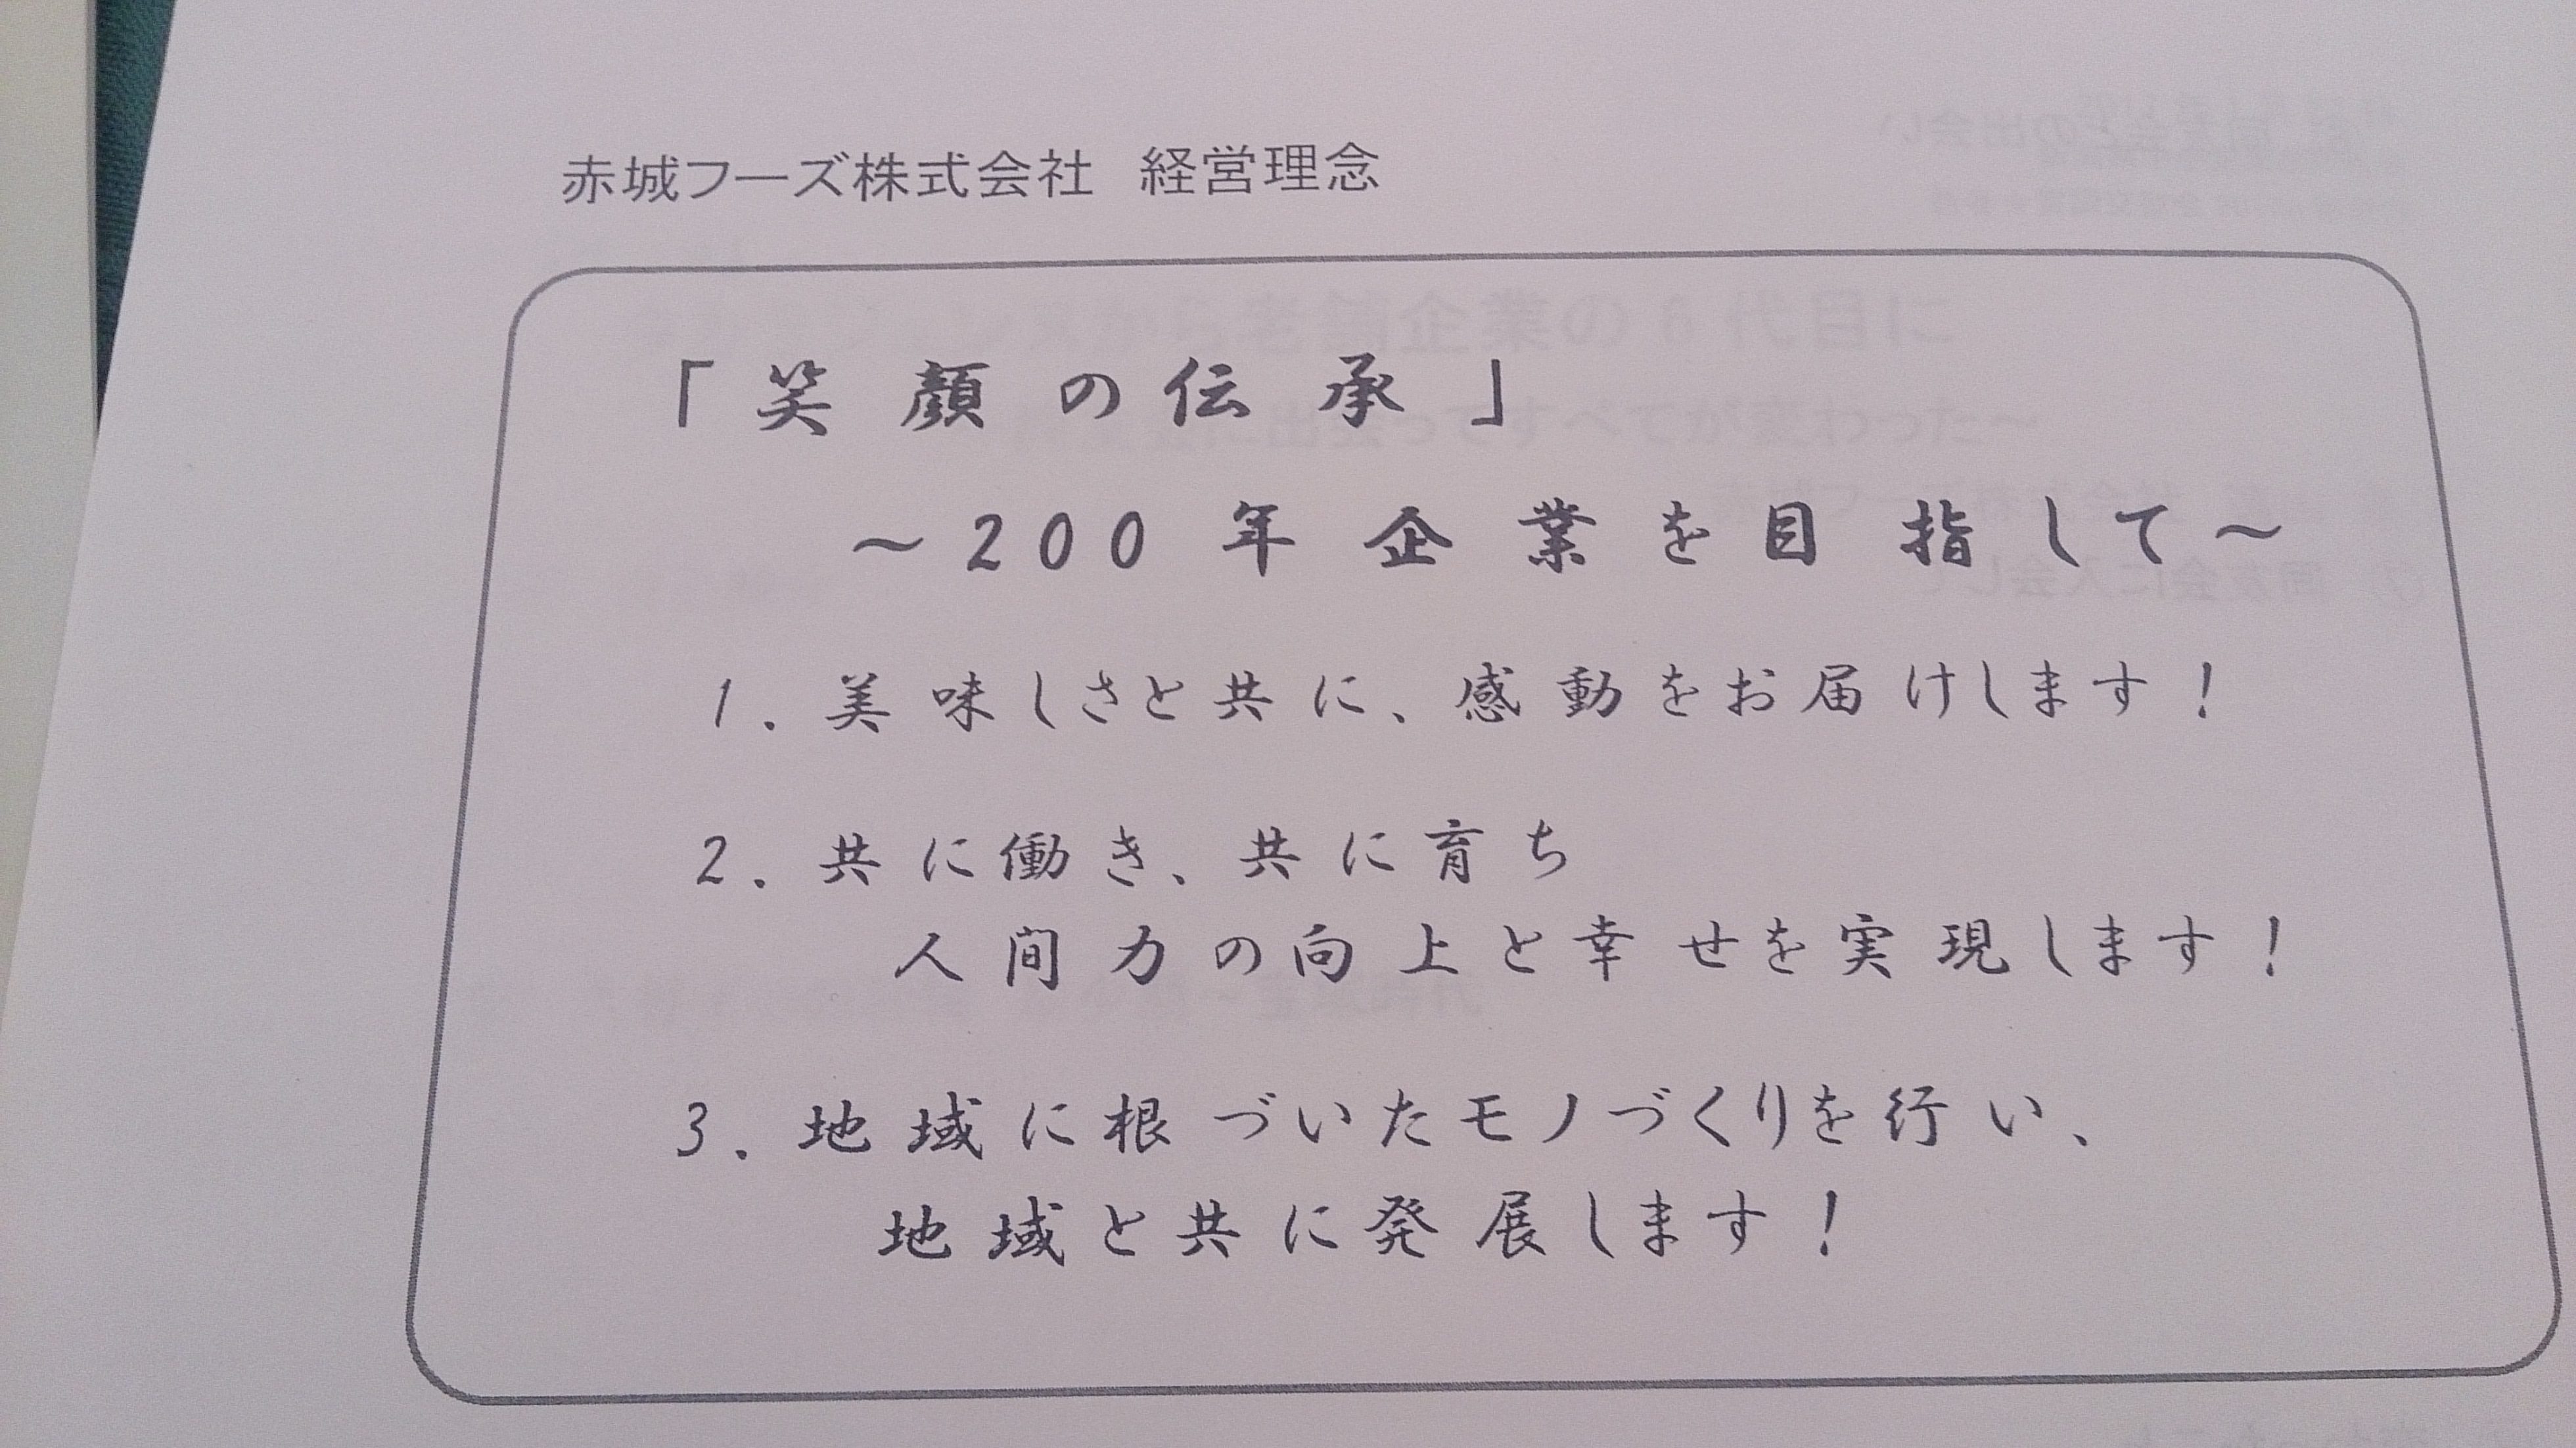 赤城フーズ株式会社 経営理念
「笑顔の伝承」
～200年企業を目指して～
1. 美味しさと共に、感動をお届けします！
2. 共に働き、共に育ち
人間力の向上と幸せを実現します！
3. 地域に根づいたモノづくりを行い、
地域と共に発展します！